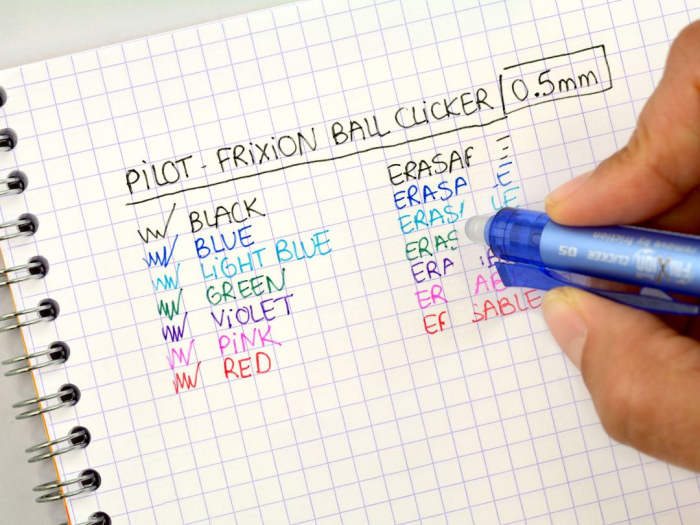 PiLOT - FRiXiON BALL CLiCKER 0.5mm
BLACK
BLUE
LiGHT BLUE
GREEN
ViOLET
PiNK
RED
ERASA E
ERASA LE
ERAS LE
ERAS
ERA
ER AB
E SABLE
FRIXION CLICKER 05